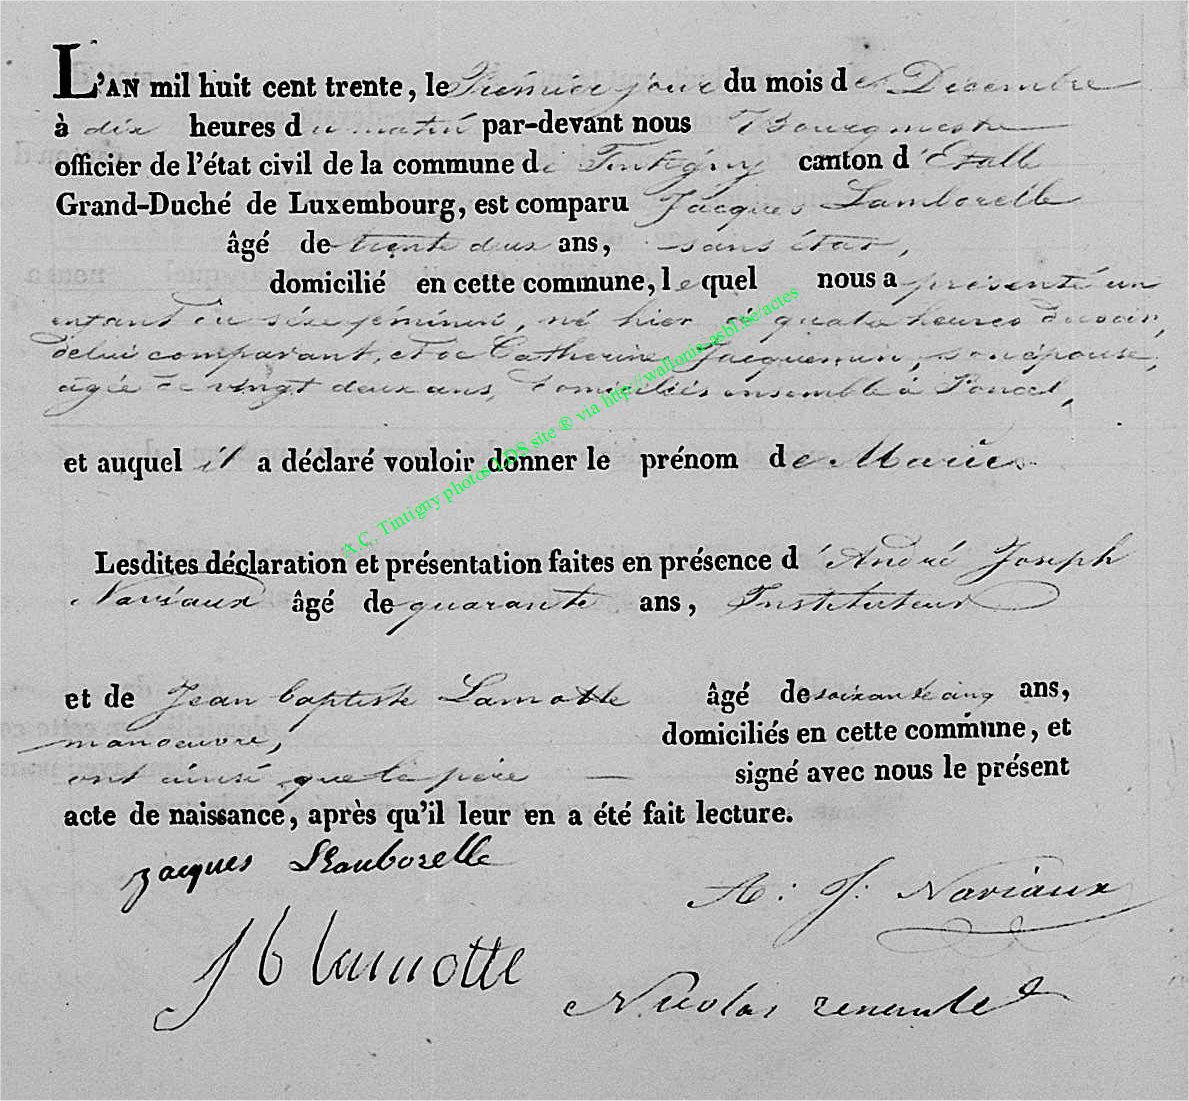 L'AN mil huit cent trente, le Premier jour du mois de Décembre
à dix heures du matin par-devant nous Bourgmestre
officier de l'état civil de la commune de Tintigny canton d'Etalle
Grand-Duché de Luxembourg, est comparu Jacques Lamborelle
âgé de trente deux ans, sans état,
domicilié en cette commune, lequel nous a présenté un
enfant du sexe féminin, né hier à quatre heures du soir,
de lui comparant, et de Catherine Jacquemin, son épouse,
agée de vingt deux ans, domiciliés ensemble à Poncel,
et auquel il a déclaré vouloir donner le prénom de Marie
A.C. Tintigny photos LDS site ® via http://wallonia-asbl.be/actes
Lesdites déclaration et présentation faites en présence d'André Joseph
Naviaux âgé de quarante ans, Instituteur
et de Jean baptiste Lamotte âgé de soixante cinq ans,
manoeuvre, domiciliés en cette commune, et
ont ainsi que le père signé avec nous le présent
acte de naissance, après qu'il leur en a été fait lecture.
jacques Lamborelle
A: J: Naviaux
J b lamotte
Nicolas